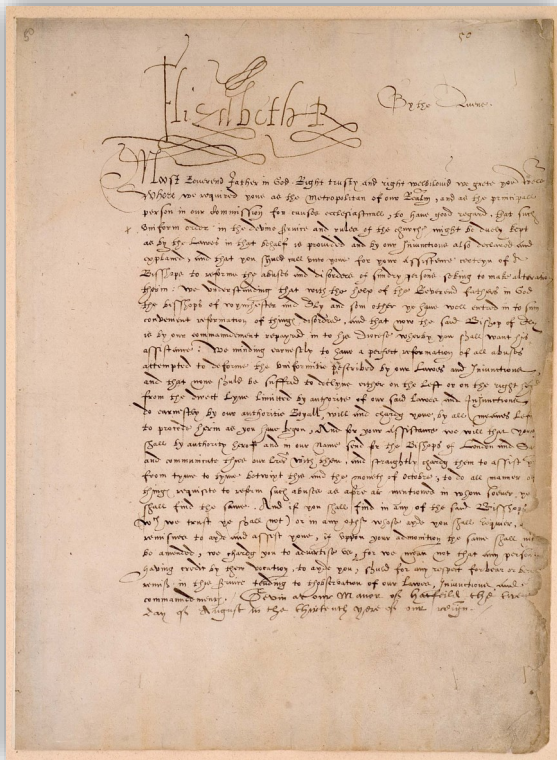 50
50
Elizabeth R
By the Quene.
Most Reverend father in God Right trusty and right welbeloved we grete you
Where we required youe as the Metropolitan of our Realm, and as the principall
person in our Commission for causes ecclesiasticall, to have good regard, that such
Uniform order in the devine service and rules of the church might be duely kept
as by the Lawes in that behalf is provided and by our Iniunctions also declared and
explaned, and that you should call unto youe for your assistence certeyn of
Bisshops to reforme the abuses and disorders of sundry persons seking to make
therin: We understanding that with the help of the Reverend fathers in God
the bisshops of and Ely and som other ye have well entred in to som
convenient reformation of things disordred, and that now the said Bishop of Ely
is by our commaundement repayred in to his Diocese wherby you shall want his
assistance: We mynding earnestly to have a perfect reformation of all abuses
attempted to deforme the uniformitie prescribed by our Lawes and Iniunctions
and that none should be suffred to declyne either on the left or on the right
from the direct lyne limited by authorite of our said Lawes and Iniunctions
do earnestly by our authoritie Royall, will and charg youe, by all meanes
to procede herin as you have begon, And for your assistaunce we will that youe
shall by authority herof and in our name send for the Bisshops of London and
and communicate these our with them, and straightly charg them to assist
from tyme to tyme betwixt this and the moneth of October, to do all maner of
things requisite to reform such abuses as afore ar mentioned in whom soever ye
shall find the same. And if you shall find in any of the said Bisshops
wch we trust ye shall not) or in any other whose ayde you shall require,
remisnes to ayde and assist youe, if uppon your admonition the same shall
be amended, we charg you to advertise us, for we mean not that any
having credit by there vocation, to ayde you, shuld for any respect forbear
remiss in this service tending to thobservation of our Lawes, Iniunctions and
commaundements. Gevin at our Manor of Hatfeild the
day of August in the thirtenth yere of our reign.